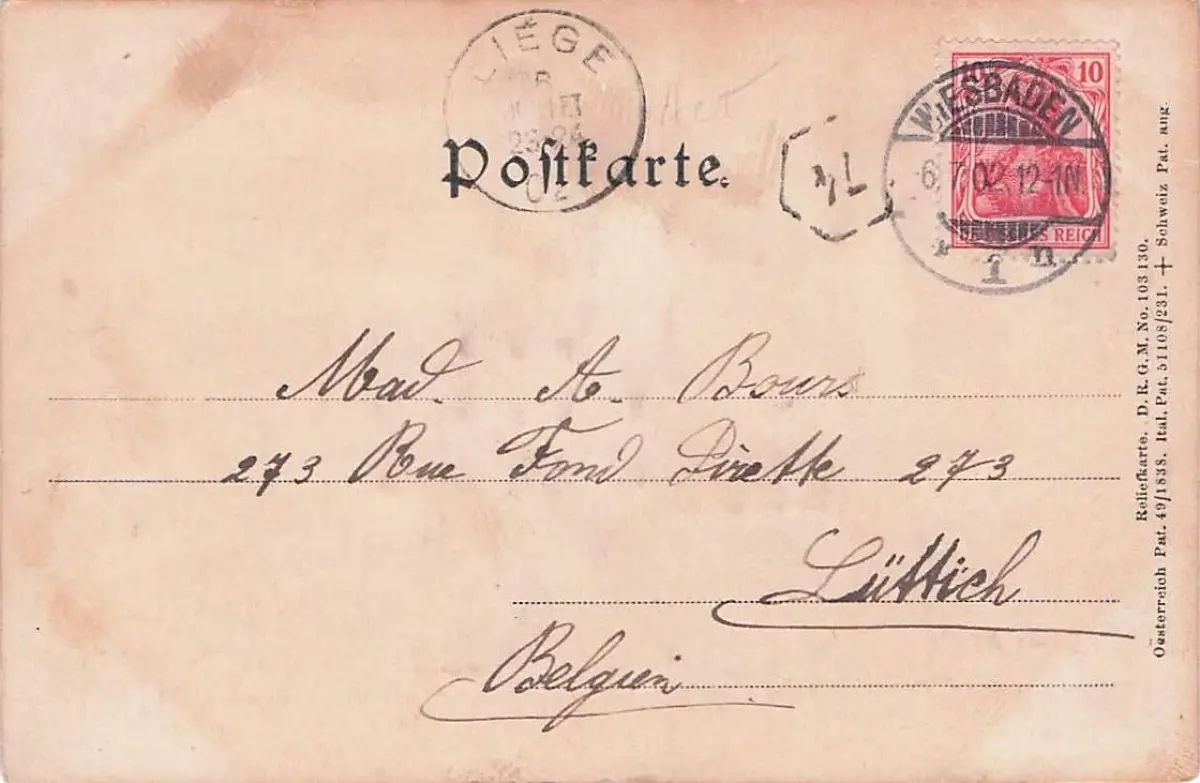 LIÉGE
8
23-24
02
Postkarte.
10
10
WIESBADEN
6.7.02. 12-1N.
* 1 n
DEUTSCHES REICH
Mad. A. Bours
273 Rue Fond Pirette 273
Lüttich
Belgien
Reliefkarte. D. R. G. M. No. 103 130.
Oesterreich Pat. 49/1838. Ital. Pat. 51108/231. + Schweiz Pat. ang.